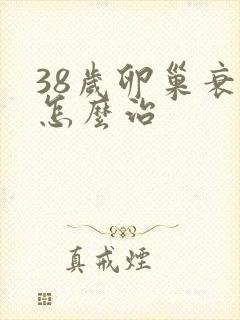 38歲卵巢衰
怎麼治
真戒煙